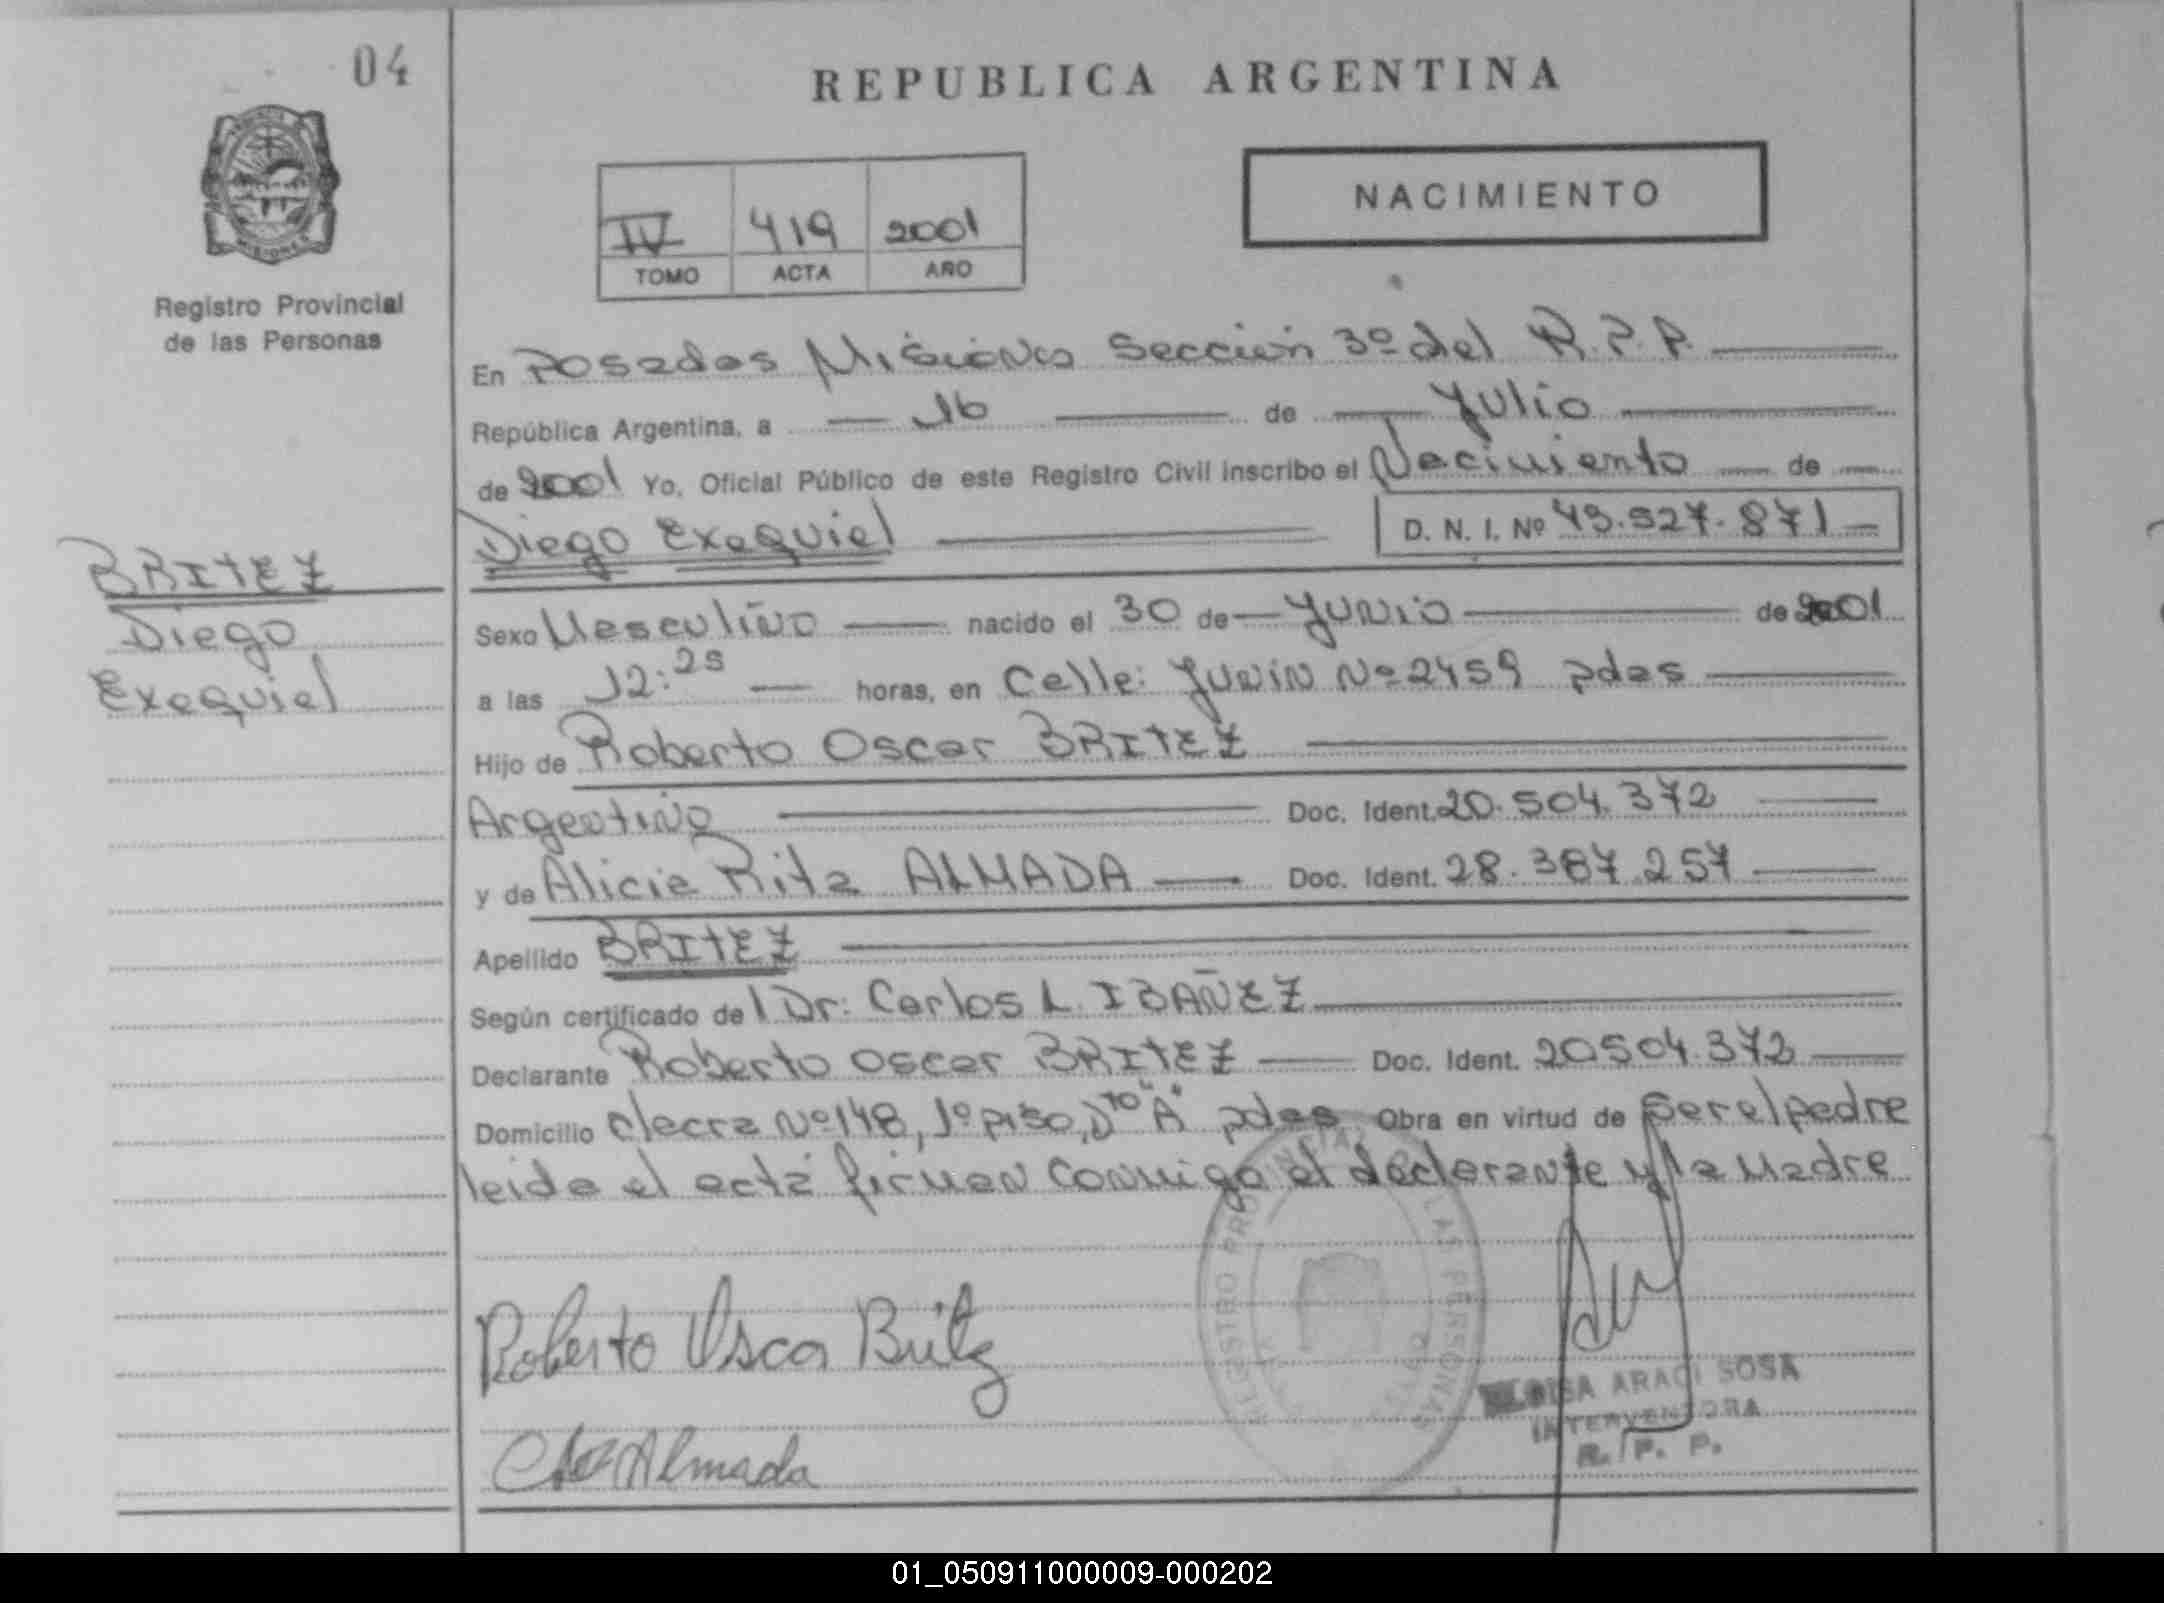 04
REPUBLICA ARGENTINA
NACIMIENTO
IV 419 2001
TOMO ACTA AÑO
Registro Provincial
de las Personas
En Posadas Misiones Sección 3º del R.P.P.
República Argentina, a 16 de Julio
de 2001 Yo, Oficial Público de este Registro Civil inscribo el Nacimiento de
Diego Exequiel D. N. I. Nº 43.527.871
BRITEZ
Diego
Exequiel
Sexo Masculino nacido el 30 de Junio de 2001
a las 12:25 horas, en Calle: Junín Nº 2459 pdas
Hijo de Roberto Oscar BRITEZ
Argentino Doc. Ident. 20.504.372
y de Alicia Rita ALMADA Doc. Ident. 28.387.257
Apellido BRITEZ
Según certificado del Dr: Carlos L. IBAÑEZ
Declarante Roberto Oscar BRITEZ Doc. Ident. 20504.372
Domicilio Nº 148, 1º piso, Dto "A" pdas Obra en virtud de ser el padre
leida el acta firman conmigo el declarante y la madre
REGISTRO PROVINCIAL DE LAS PERSONAS
Roberto Oscar Britez
Almada
ARACI SOSA
INTERVENTORA
R. P. P.
01_050911000009-000202